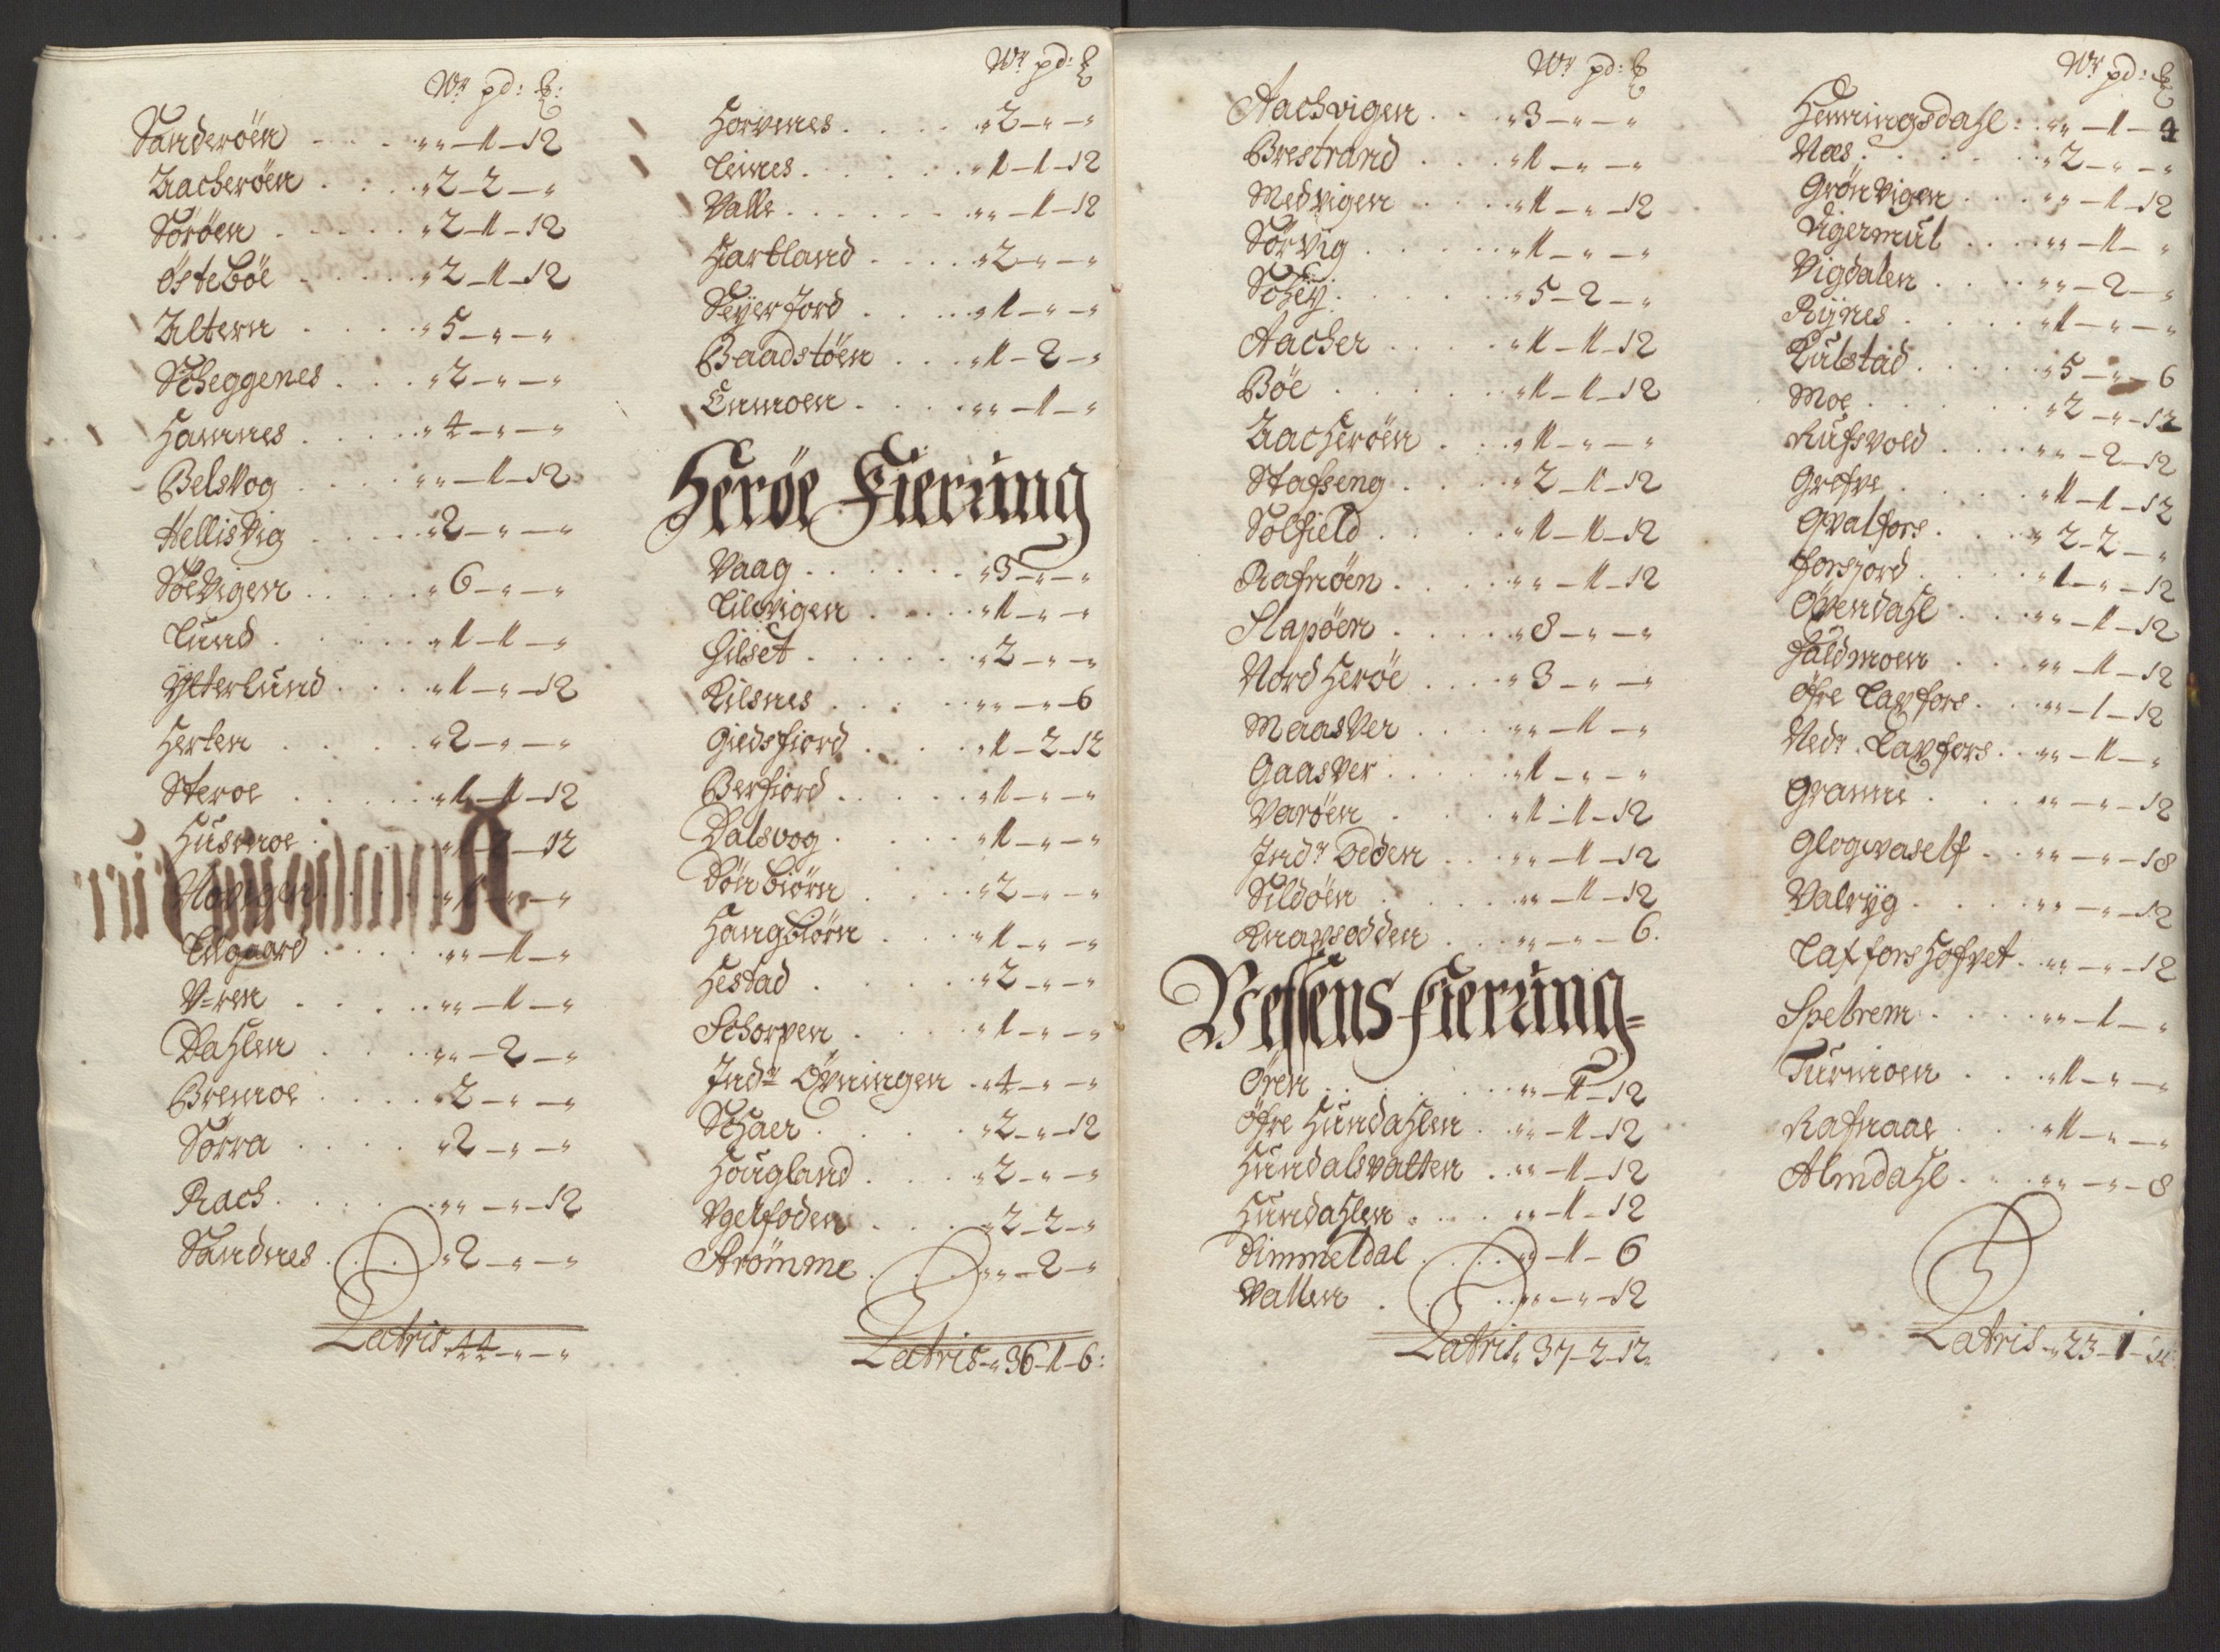 Wr pd: ℔:
Sanderöen - - - „ „ – 1 – 12
Zacheröen . . . „ 2 – 2 – „
Söröen . . . „ 2 – 1 – 12
Östeböe . . . „ 2 – 1 – 12
Altern . . . „ 5 – „ – „
Scheggenes . . . „ 2 – „ – „
Hamnes . . . „ 4 – „ – „
Belsvog . . . „ „ – 1 – 12
Hellisvig . . . „ 2 – „ – „
Söevigen . . . „ 6 – „ – „
Lund . . . „ 1 – 1 – „
Ytterlund . . . „ 1 – „ – 12
Herten . . . „ 2 – „ – „
Steroe . . . „ 1 – 1 – 12
Husmoe . . . 12
„ 1 – „ – „
„ „ – 1 – „
V=ren . . . „ „ – 1 – „
Dahlen . . . „ „ – 2 – „
Bremoe . . . „ 2 – „ – „
Sörra . . . „ 2 – „ – „
Rach . . . „ „ – „ – 12
Sandnes . . . „ 2 – „ – „
Latris „ 44 – „ – „
Wr pd: ℔
Horvnes . . . „ 2 – „ – „
Leines . . . „ 1 – 1 – 12
Valle . . . „ „ – 1 – 12
Hartland . . . „ 2 – „ – „
Seyerford . . . „ 1 – „ – „
Baadstöen . . . „ 1 – 2 – „
Enmoen . . . „ „ – 1 – „
Heröe Fierung
Vaag . . . „ 3 – „ – „
Lilevigen . . . „ 1 – „ – „
Hilset . . . „ 2 – „ – „
Kilsnes . . . „ „ – „ – 6
Giedsfiord . . . „ 1 – 2 – 12
Berfiord . . . „ 1 – „ – „
Dalsvog . . . „ 1 – „ – „
Dönbiörn . . . „ 2 – „ – „
Hangbiörn . . . „ 1 – „ – „
Hestad . . . „ 2 – „ – „
Schorpen . . . „ 1 – „ – „
Indr Öveningen . . . „ 4 – „ – „
Schaer . . . „ 2 – „ – 12
Hougland . . . „ 2 – „ – „
Vgelfoden . . . „ 2 – 2 – „
Strömme . . . „ „ – 2 – „
Latris – „ 36 – 1 – 6:
Wr pd: ℔
Aachvigen . . . „ 3 – „ – „
Brestrand . . . „ 1 – „ – „
Medvigen . . . „ 1 – „ – 12
Sörvig . . . „ 1 – „ – „
Schey . . . „ 5 – 2 – „
Aacher . . . „ 1 – 1 – 12
Böe . . . „ 1 – 1 – 12
Zacheröen . . . „ 1 – „ – „
Stafseng . . . „ 2 – 1 – 12
Solfield . . . „ 1 – 1 – 12
Rafnöen . . . „ „ – 1 – 12
Slapöen . . . „ 8 – „ – „
Nord Heröe . . . „ 3 – „ – „
Maasver . . . „ „ – 1 – „
Gaasver . . . „ 1 – „ – „
Varöen . . . „ 1 – 1 – 12
Indr Deden . . . „ „ – 1 – 12
Sildöen . . . „ „ – 1 – 12
Knavsodden . . . „ „ – „ – 6.
Vefsens Fierung=
Ören . . . „ „ – 1 – 12
Öfre Hundahlen . . . „ „ – 1 – 12
Hundalsvatten . . . „ „ – 1 – 12
Hundahlen . . . „ „ – 1 – 12
Dimmeldal . . . „ „ – 1 – 6
Vatten . . . „ „ – „ – 12
Latris „ 37 – 2 – 12
Wr pd: ℔
Henningsdahl . . . „ „ – 1 – 4
Næs . . . „ 2 – „ – „
Grönvigen . . . „ „ – 1 – 12
Digermul . . . „ „ – 1 – „
Vigdalen . . . „ „ – 2 – „
Rynes . . . „ 1 – „ – „
Kulstad . . . „ 5 – „ – 6
Moe . . . „ 2 – „ – 12
Rufsvold . . . „ „ – 2 – 12
Grefve . . . „ 1 – 1 – 12
Qvalfors . . . „ 2 – 2 – „
Forsiord . . . „ 1 – „ – 12
Övendahl . . . „ „ – 1 – 12
Haldmoen . . . „ „ – 1 – 12
Öfre Laxfors . . . „ „ – 1 – 12
Nedr. Laxfors . . . „ „ – 1 – „
Granne . . . „ „ – „ – 12
Glogvaself . . . „ „ – „ – 18
Valryg . . . „ „ – „ – 12
Laxfors Hofvet . . . „ „ – „ – 12
Spelrem . . . „ „ – 1 – „
Turmoen . . . „ 1 – „ – „
Rafnaae . . . „ 1 – „ – „
Almdahl . . . „ „ – „ – 8
Latris – „ 23 – 1 –